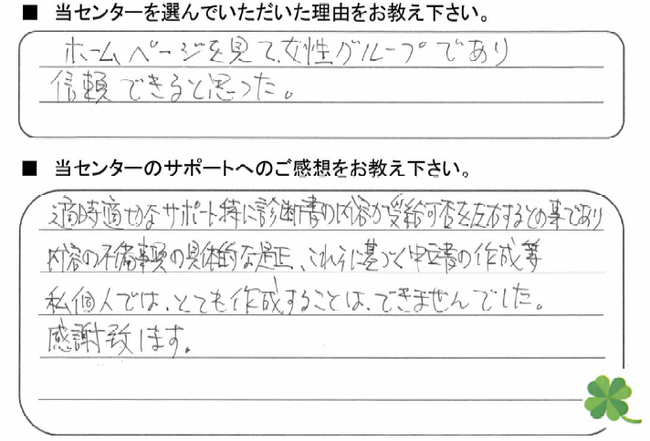 ■ 当センターを選んでいただいた理由をお教え下さい。
ホームページを見て、女性グループであり
信頼できると思った。
■ 当センターのサポートへのご感想をお教え下さい。
適時適切なサポート、特に診断書の内容が受給可否を左右するとの事であり
内容の不備事項の具体的な是正、これらに基づく申立書の作成等
私個人では、とても作成することは、できませんでした。
感謝致します。